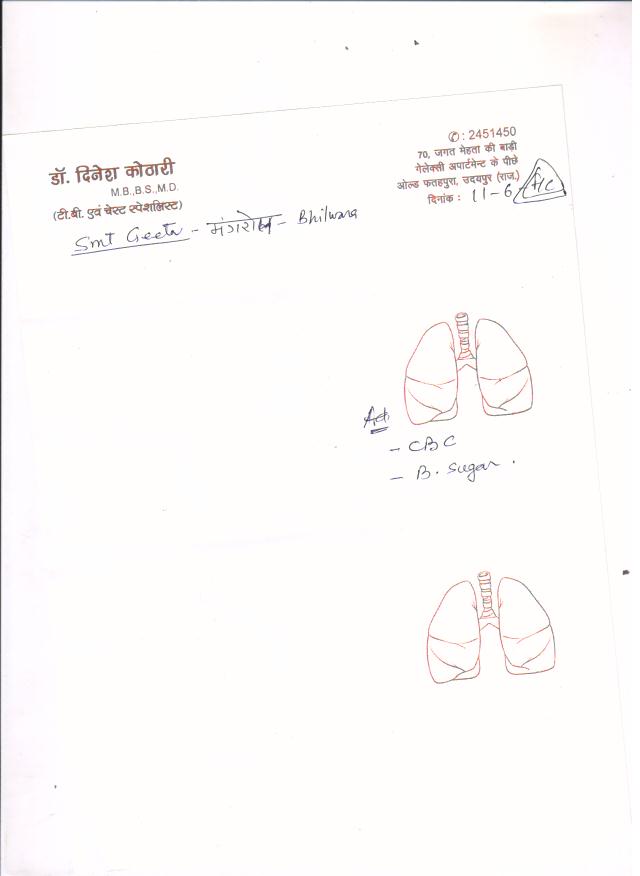 डॉ. दिनेश कोठारी
M.B.,B.S.,M.D.
(टी.बी. एवं चेस्ट स्पेशलिस्ट)
✆: 2451450
70, जगत मेहता की बाड़ी
गेलेक्सी अपार्टमेन्ट के पीछे
ओल्ड फतहपुरा, उदयपुर (राज.)
दिनांक : 11-6
Smt Geeta - - Bhilwara
- CBC
- B. Sugar .